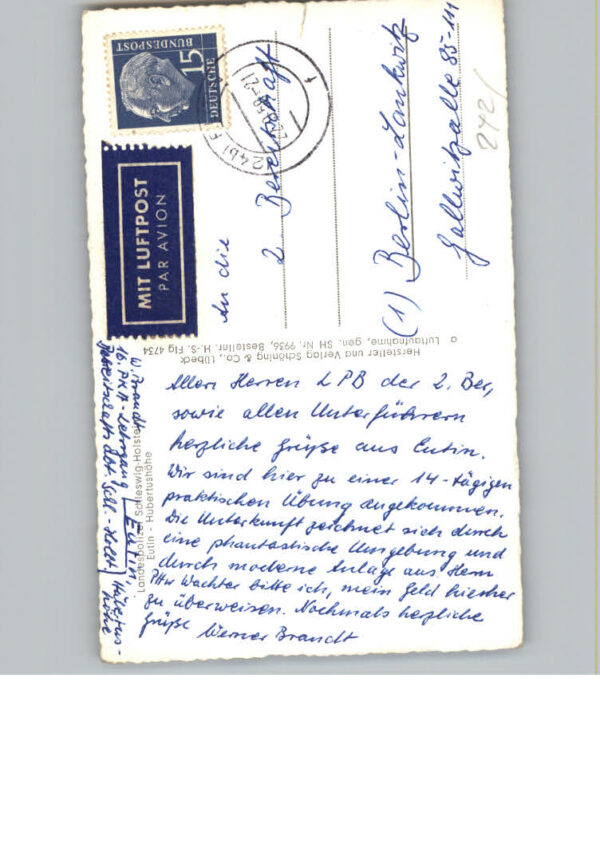 Allen Herren LPB der 2. Ber,
sowie allen Unterführern
herzliche Grüße aus Eutin.
Wir sind hier zu einer 14-tägigen
praktischen Übung angekommen.
Die Unterkunft zeichnet sich durch
eine phantastische Umgebung und
durch moderne Anlage aus. Herrn
PHw Wachter bitte ich, mein Geld hierher
zu überweisen. Nochmals herzliche
Grüße Werner Brandt
W. Brandt
16. PKA-Lehrgang
Bereitschafts Abt. Schl.-Holst
Eutin,
Hubertus-
höhe
Landespolizei Schleswig-Holstein
Eutin - Hubertushöhe
Hersteller und Verlag Schöning & Co., Lübeck
a Luftaufnahme, gen. SH Nr. 9936, Bestellnr. H.-S. Flg 4734
MIT LUFTPOST
PAR AVION
DEUTSCHE
BUNDESPOST
15
An die
2. Bereitschaft
(1) Berlin-Lankwitz
Gallwitzallee 85-111
242/